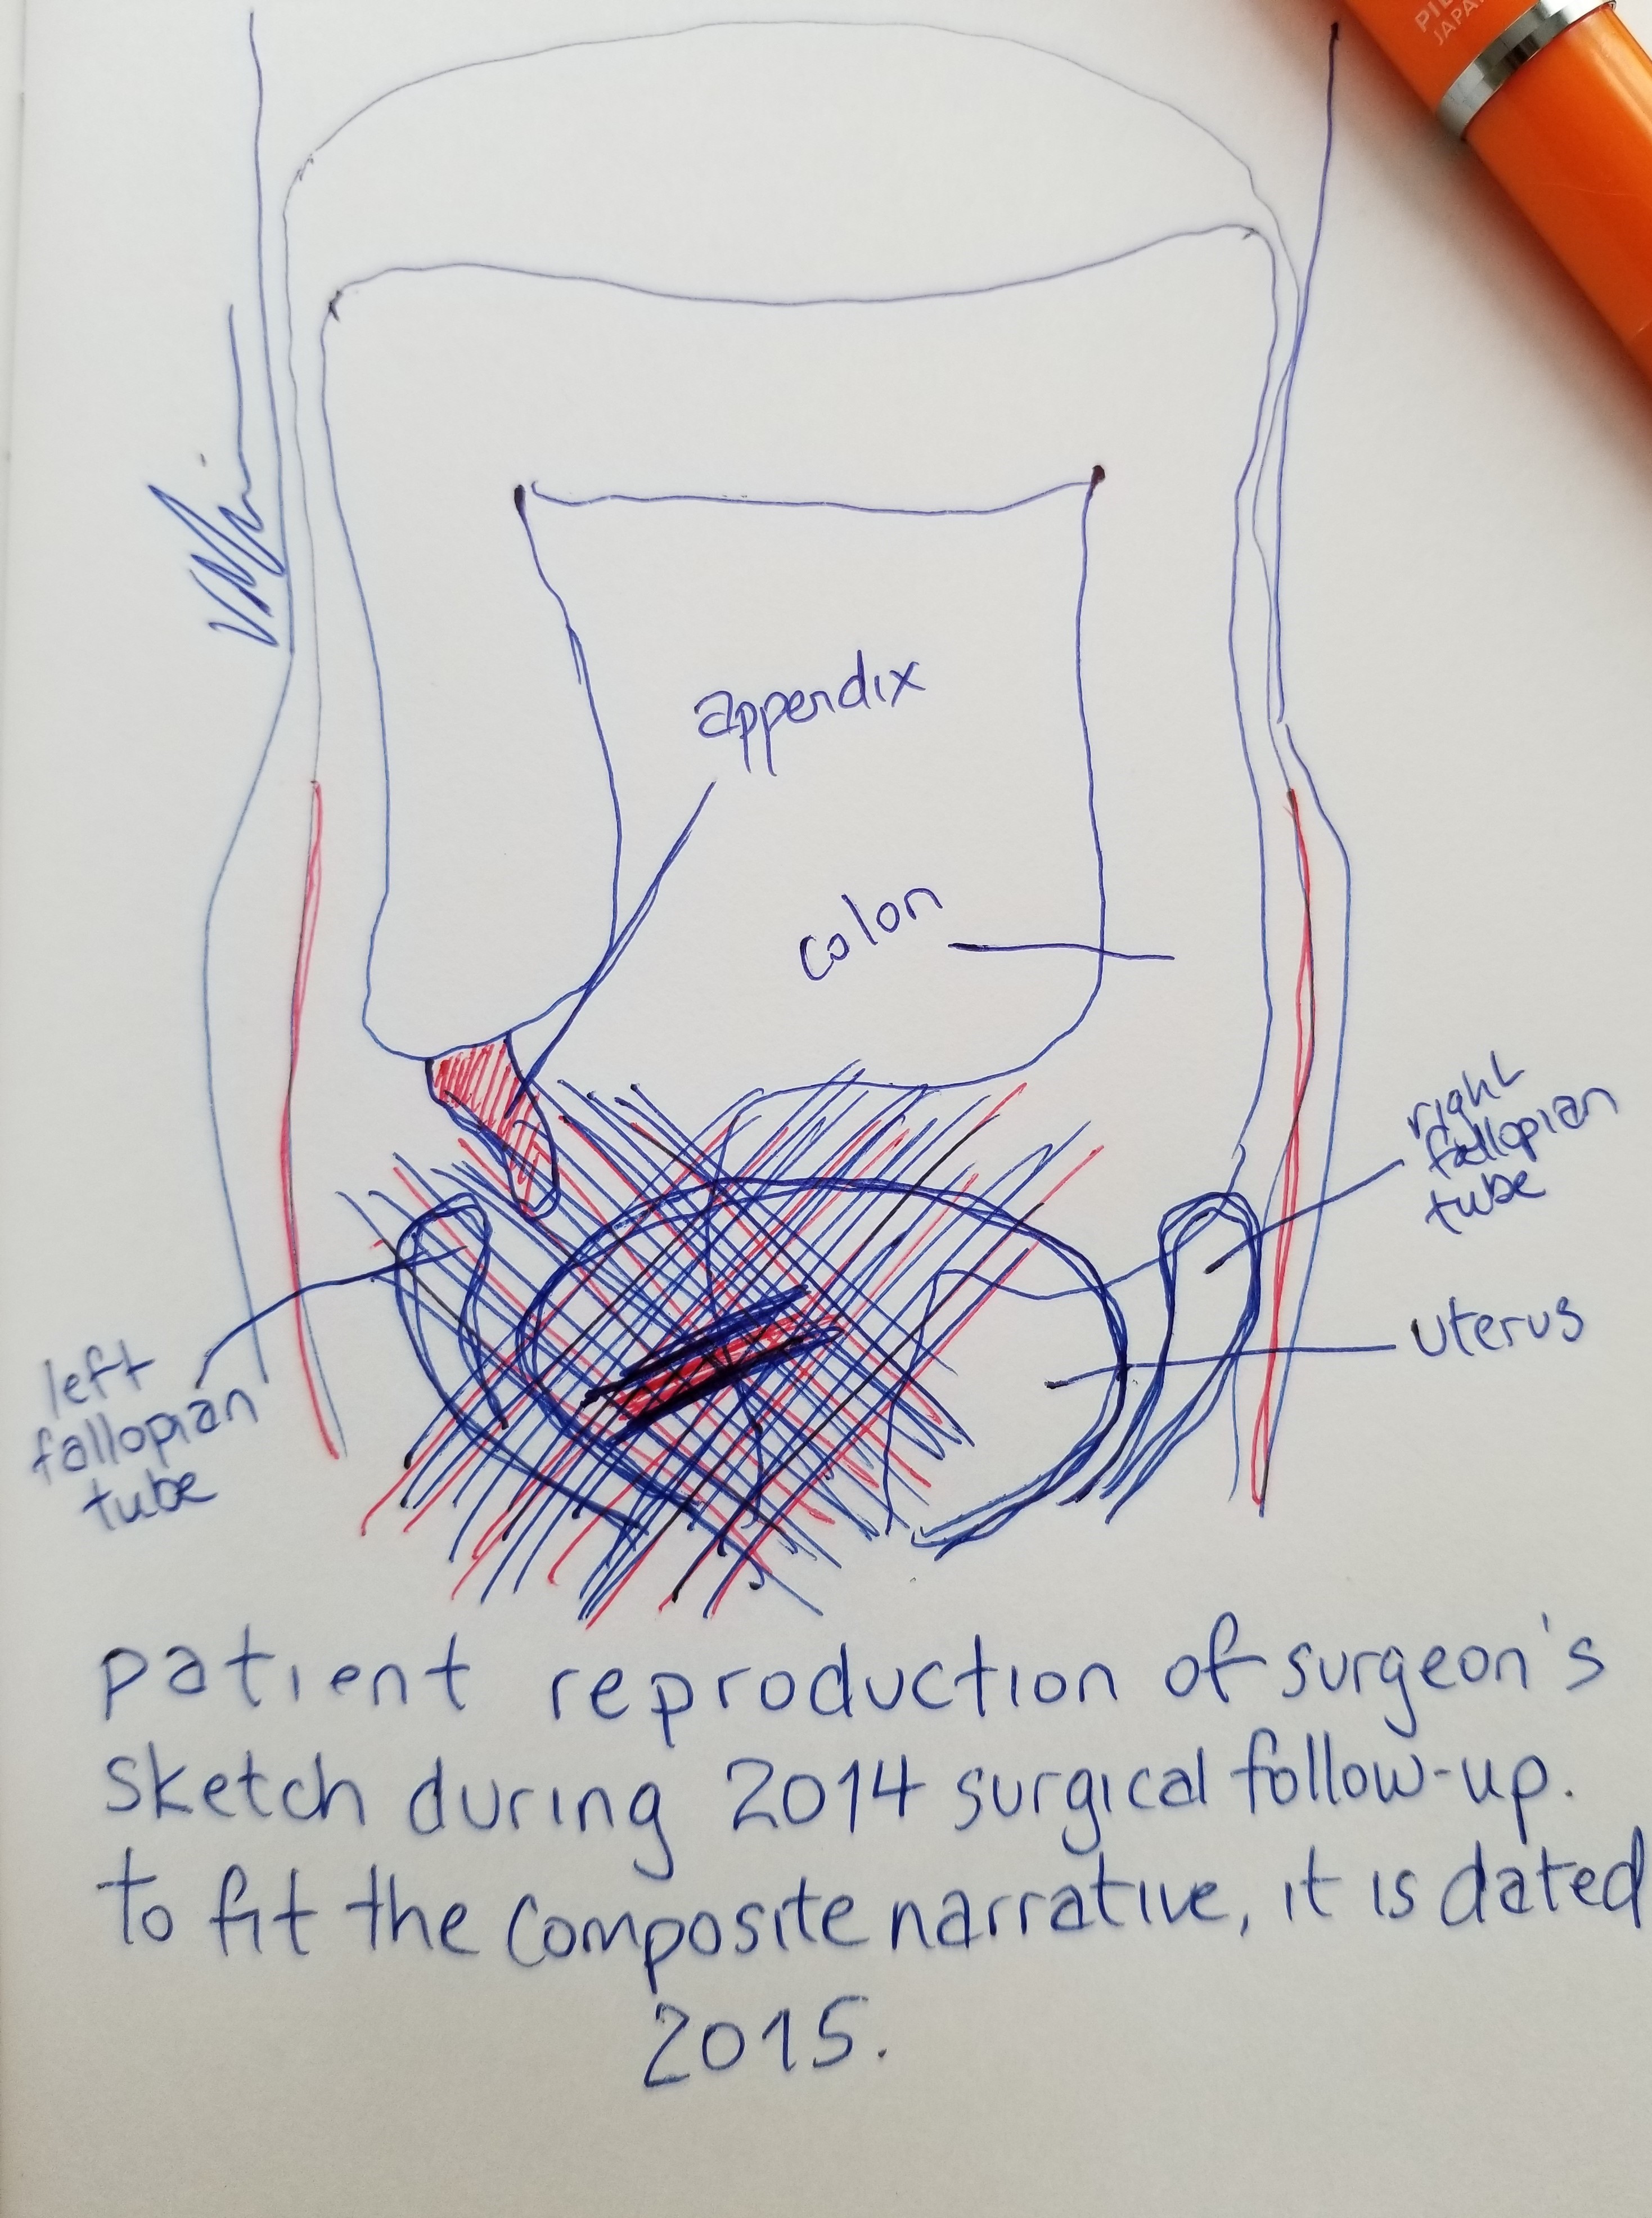 PIL
JAPA
appendix
colon
right
fallopian
tube
uterus
left
fallopian
tube
patient reproduction of surgeon's
sketch during 2014 surgical follow-up.
to fit the composite narrative, it is dated
2015.